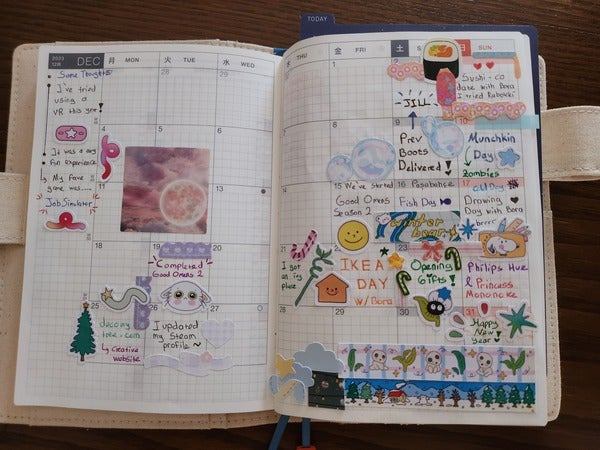 TODAY
2023
12月
DEC
月 MON
火 TUE
水
THU
金 FRI
土
日 SUN
Some Thoughts
I've tried
using a
VR this year
It was a very
fun experience
My fave
game was.....
Job Simulator
28
29
4
11
13
18
19
20
25
26
27
Completed
Good Omens 2
I updated
my Steam
profile ~
creative
website
1
7
8
10
14
15 We've started
Good Omens
Season 2
Sushi-co
date with Bora
I tried
JILL
Prev
Boots
Delivered!
Munchkin
Day
Zombies
16
Fish Day
17
Drawing
Day with Bora
brrrr
winter
bear
21
22
I got
place
IKEA
DAY
w/ Bora
Opening
Gifts!
Philips Hue
& Princess
Mononoke
28
29
30
31
Happy
New
Year